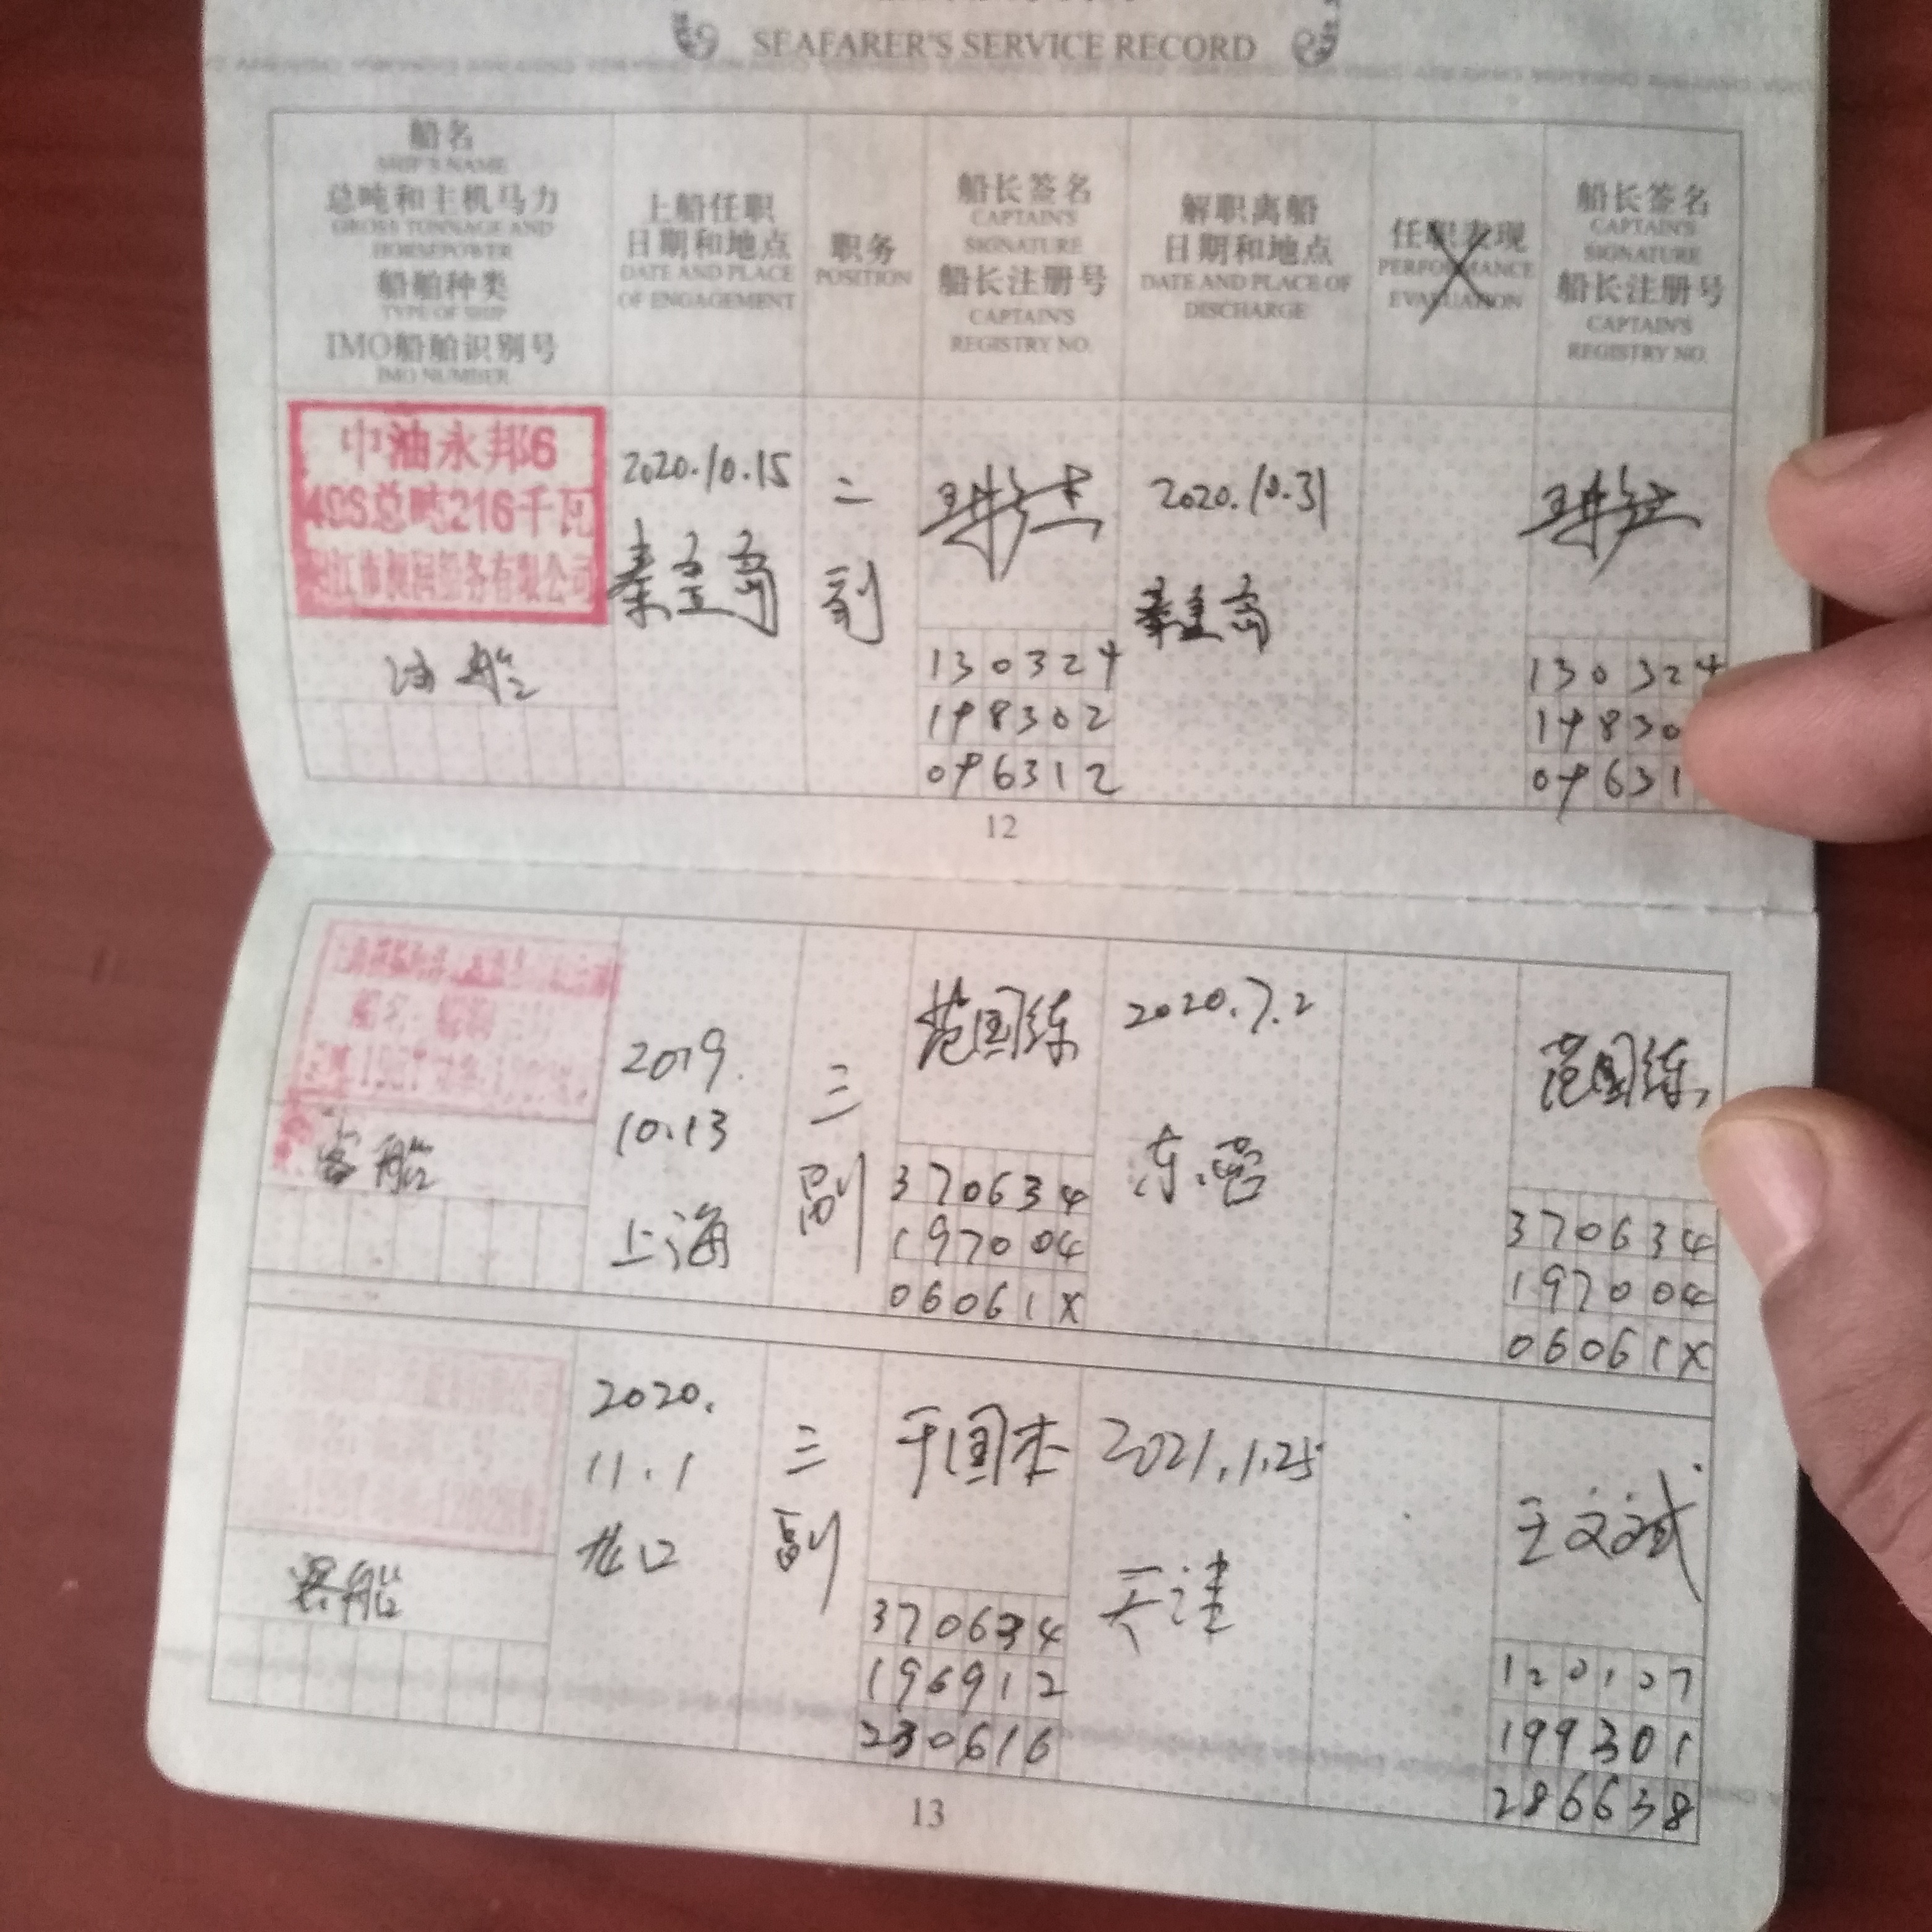 SEAFARER'S SERVICE RECORD
船名
SHIP'S NAME
总吨和主机马力
GROSS TONNAGE AND
HORSEPOWER
船舶种类
TYPE OF SHIP
IMO船舶识别号
IMO NUMBER
上船任职
日期和地点
DATE AND PLACE
OF ENGAGEMENT
职务
POSITION
船长签名
CAPTAIN'S
SIGNATURE
船长注册号
CAPTAIN'S
REGISTRY NO.
解职离船
日期和地点
DATE AND PLACE OF
DISCHARGE
任职表现
PERFORMANCE
EVALUATION
船长签名
CAPTAIN'S
SIGNATURE
船长注册号
CAPTAIN'S
REGISTRY NO.
中油永邦6
总吨216千瓦
服务有限公司
油船
2020.10.15
秦皇岛
二
副
130324
198302
096312
2020.10.31
秦皇岛
130324
19830
09631
12
船名
客船
2019.
10.13
上海
三
副
范国练
370634
197004
06061X
2020.7.2
东营
范国练
370634
197004
06061X
船
2020.
11.1
龙口
三
副
于国杰
370634
196912
230616
2021.1.25
天津
王文斌
120107
199301
286638
13